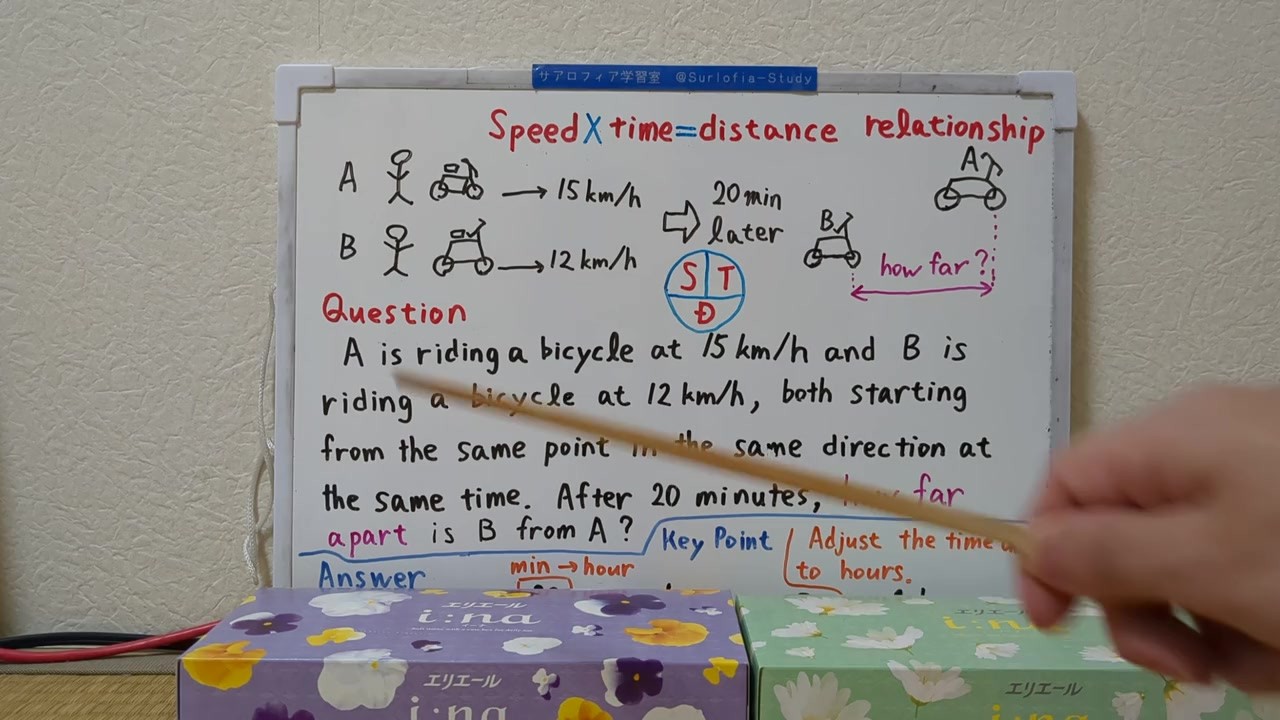 サアロフィア学習室 @Surlofia-Study
Speed X time = distance relationship
A → 15 km/h
B → 12 km/h
20 min
later
B
A
how far?
S T
D
Question
A is riding a bicycle at 15 km/h and B is
riding a bicycle at 12 km/h, both starting
from the same point in the same direction at
the same time. After 20 minutes, how far
apart is B from A?
Key Point
Adjust the time
to hours.
Answer
min → hour
エリエール
i:na
エリエール
i:na
エリエール
i:na
エリエール
i:na